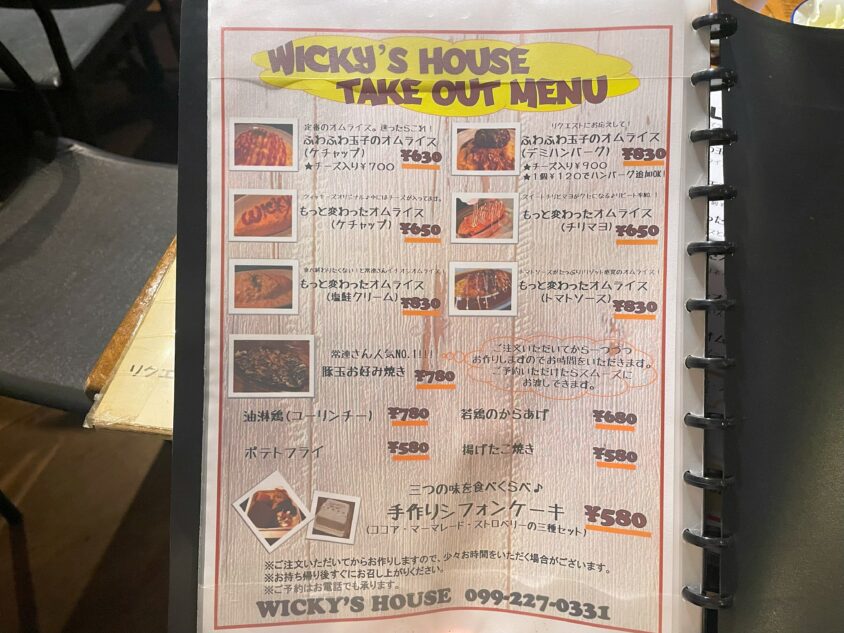 WICKY'S HOUSE
TAKE OUT MENU
定番のオムライス。迷ったらこれ！
ふわふわ玉子のオムライス
(ケチャップ) ¥630
★チーズ入り¥700
リクエストにお応えして！
ふわふわ玉子のオムライス
(デミハンバーグ) ¥830
★チーズ入り¥900
★1個¥120でハンバーグ追加OK!
もっと変わったオムライス
(ケチャップ) ¥650
もっと変わったオムライス
(チリマヨ) ¥650
もっと変わったオムライス
(塩鮭クリーム) ¥830
トマトソースがたっぷりリゾット感覚のオムライス！
もっと変わったオムライス
(トマトソース) ¥830
常連さん人気NO.1!!!
豚玉お好み焼き ¥780
ご注文いただいてから一つづつ
お作りしますのでお時間をいただきます。
ご予約いただけたらスムーズに
お渡しできます。
油淋鶏(ユーリンチー) ¥780
若鶏のからあげ ¥680
ポテトフライ ¥580
揚げたこ焼き ¥580
三つの味を食べくらべ♪
手作りシフォンケーキ ¥580
(ココア・マーマレード・ストロベリーの三種セット)
※ご注文いただいてからお作りしますので、少々お時間をいただく場合がございます。
※お持ち帰り後すぐにお召し上がりください。
※ご予約はお電話でも承ります。
WICKY'S HOUSE 099-227-0331